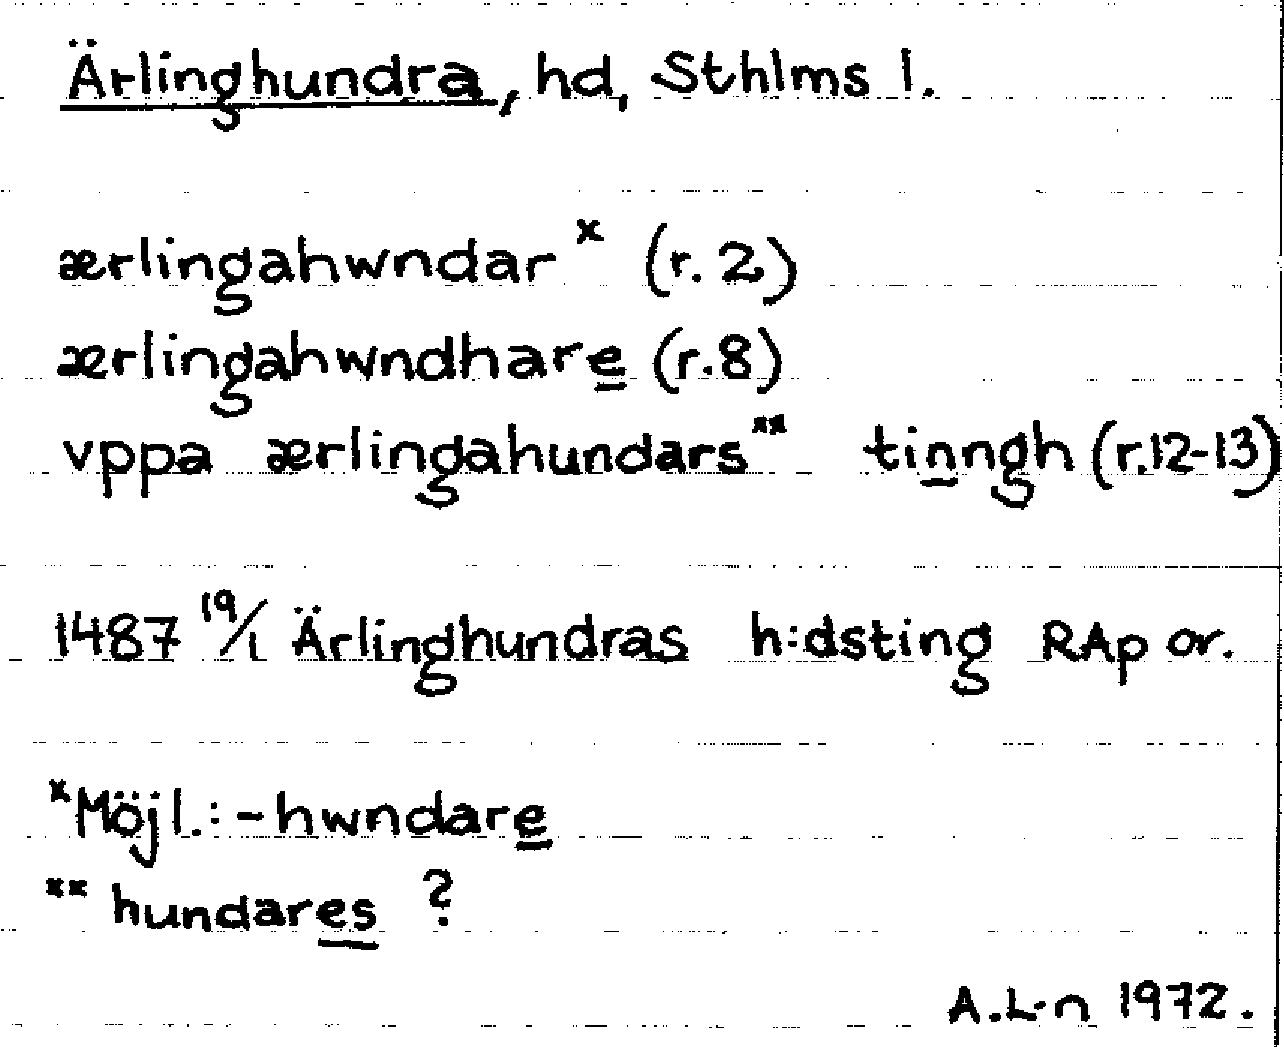 Ärlinghundra, hd, Sthlms l.
ærlingahwndar x (r. 2)
ærlingahwndhare (r.8)
vppa ærlingahundars xx tinngh (r.12-13)
1487 19/1 Ärlinghundras h:dsting RAp or.
x Möjl.: -hwndare
xx hundares ?
A.L-n 1972.